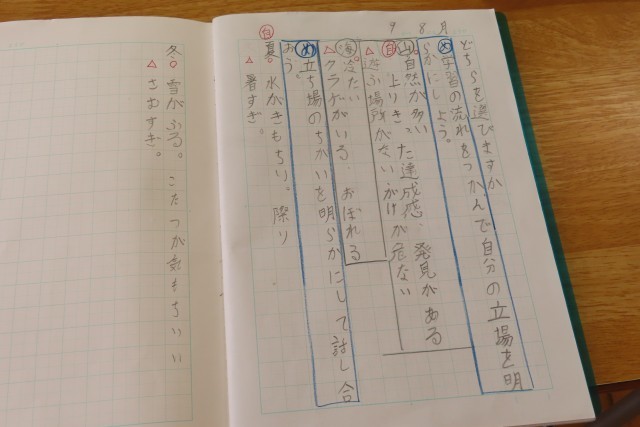 9 8月
どちらを選びますか
め 学習の流れをつかんで自分の立場を明
らかにしよう。
山 自然が多い 発見がある
自 上りきった達成感
△ 遊ぶ場所がない がけが危ない
海 冷たい
△ クラゲがいる おぼれる
め 立ち場のちがいを明らかにして話し合
おう。
自 夏○ 水がきもちい。 祭り
△ 暑すぎ。
冬○ 雪がふる。 こたつが気もちいい
△ さむすぎ。